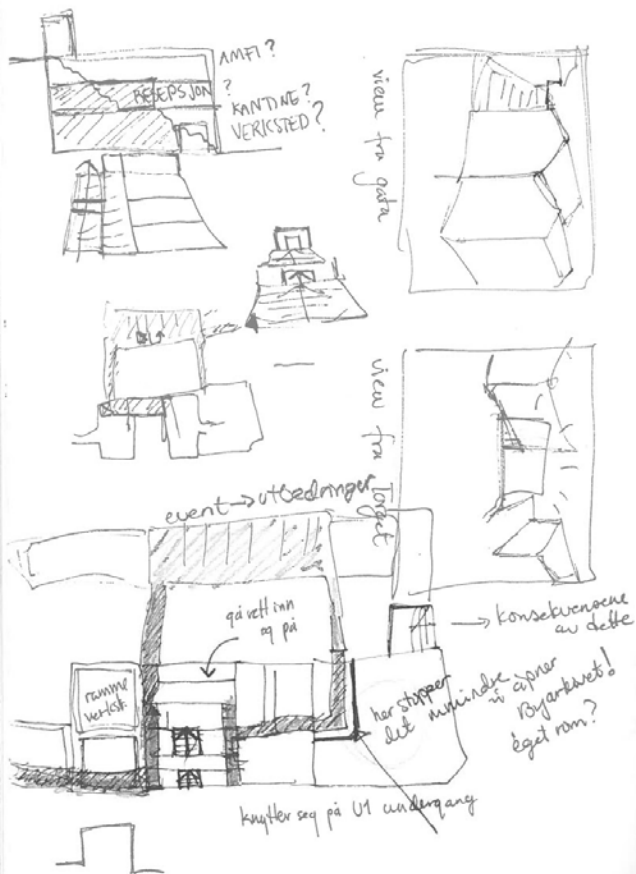 AMFI?
RESEPSJON?
KANTINE?
VERKSTED?
view fra gata
view fra Torget
event → utbedringer
gå rett inn
og på
→ konsekvensene
av dette
ramme
verkst.
her stopper
det mindre
vi åpner
Byarkivet!
eget rom?
knytter seg på U1 undergang